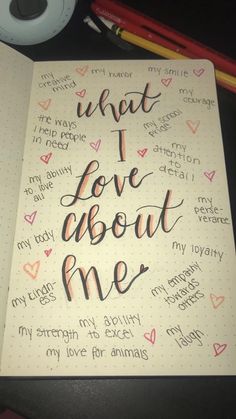 my creative mind
my humor
my smile
my courage
the ways I help people in need
what
my school pride
I
my attention to detail
my ability to love all
Love
my perseverance
my body
about
my loyalty
me
my kindness
my empathy towards others
my ability to excel
my strength
my laugh
my love for animals